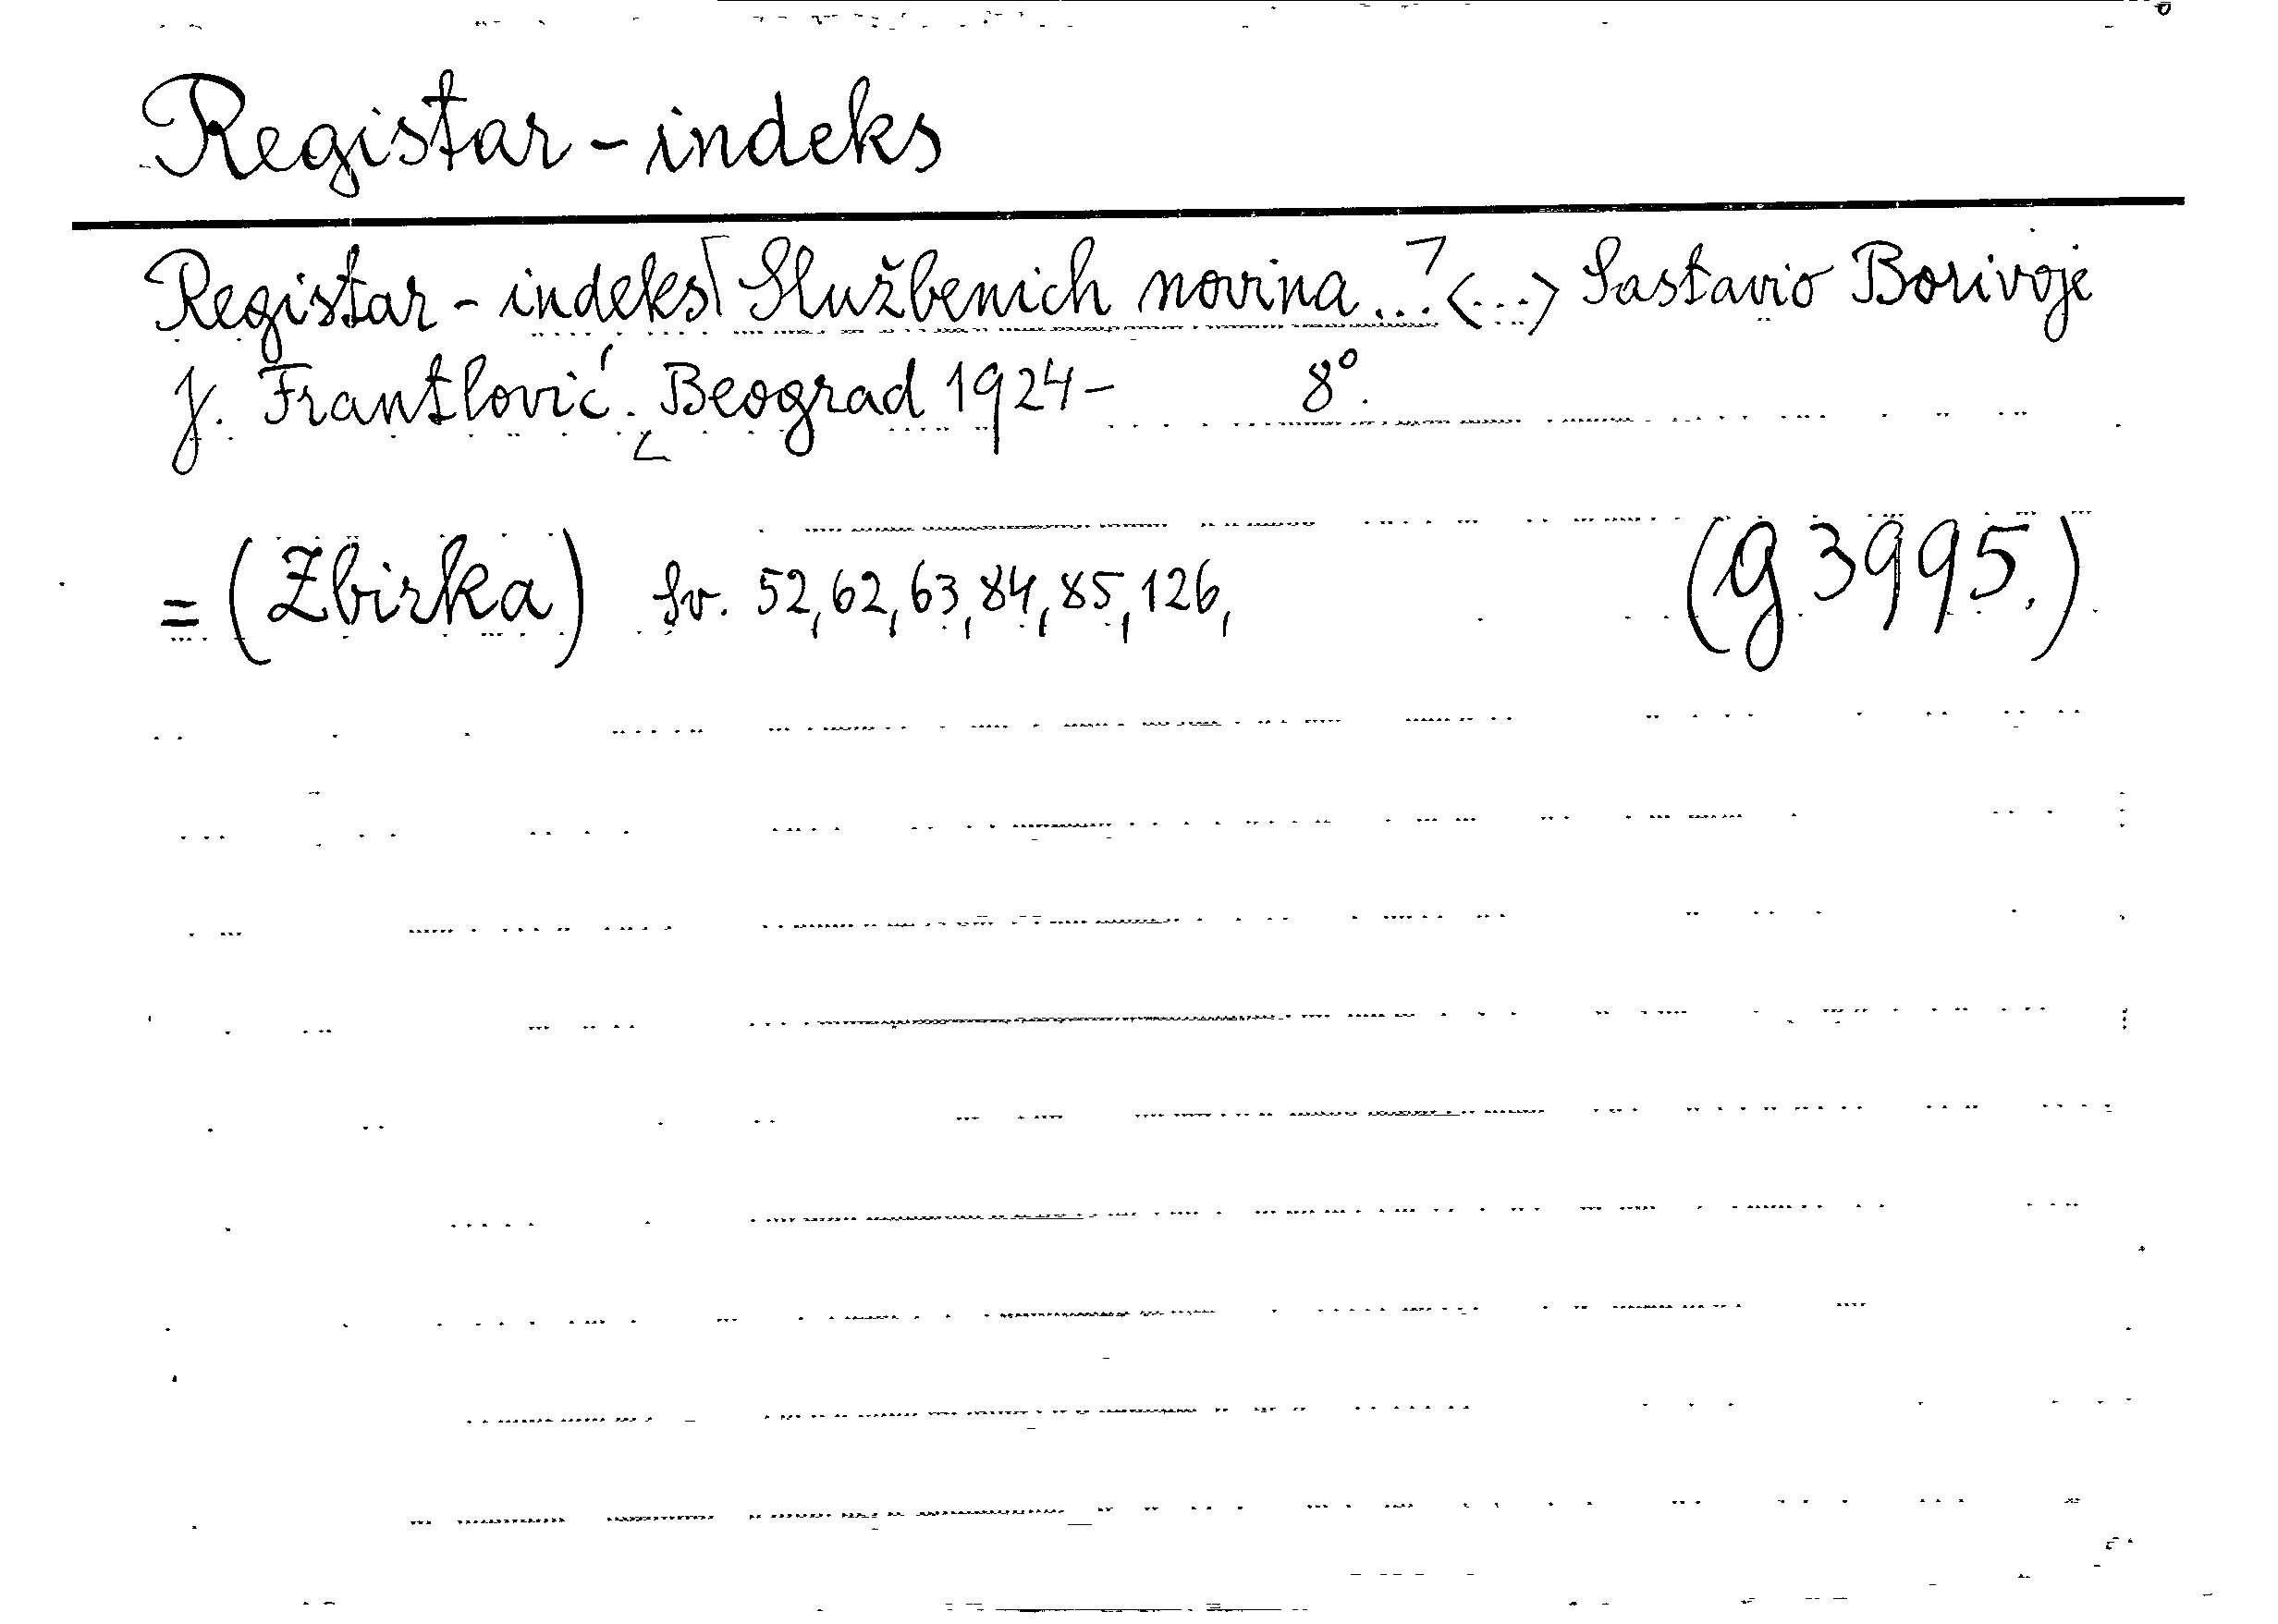 Registar - indeks
Registar - indeks⌈Službenich novina...⌉<...> Sastavio Borivoje
J. Frantlović. Beograd 1924- 8°.
= (Zbirka) Sv. 52, 62, 63, 84, 85, 126, (g 3995.)